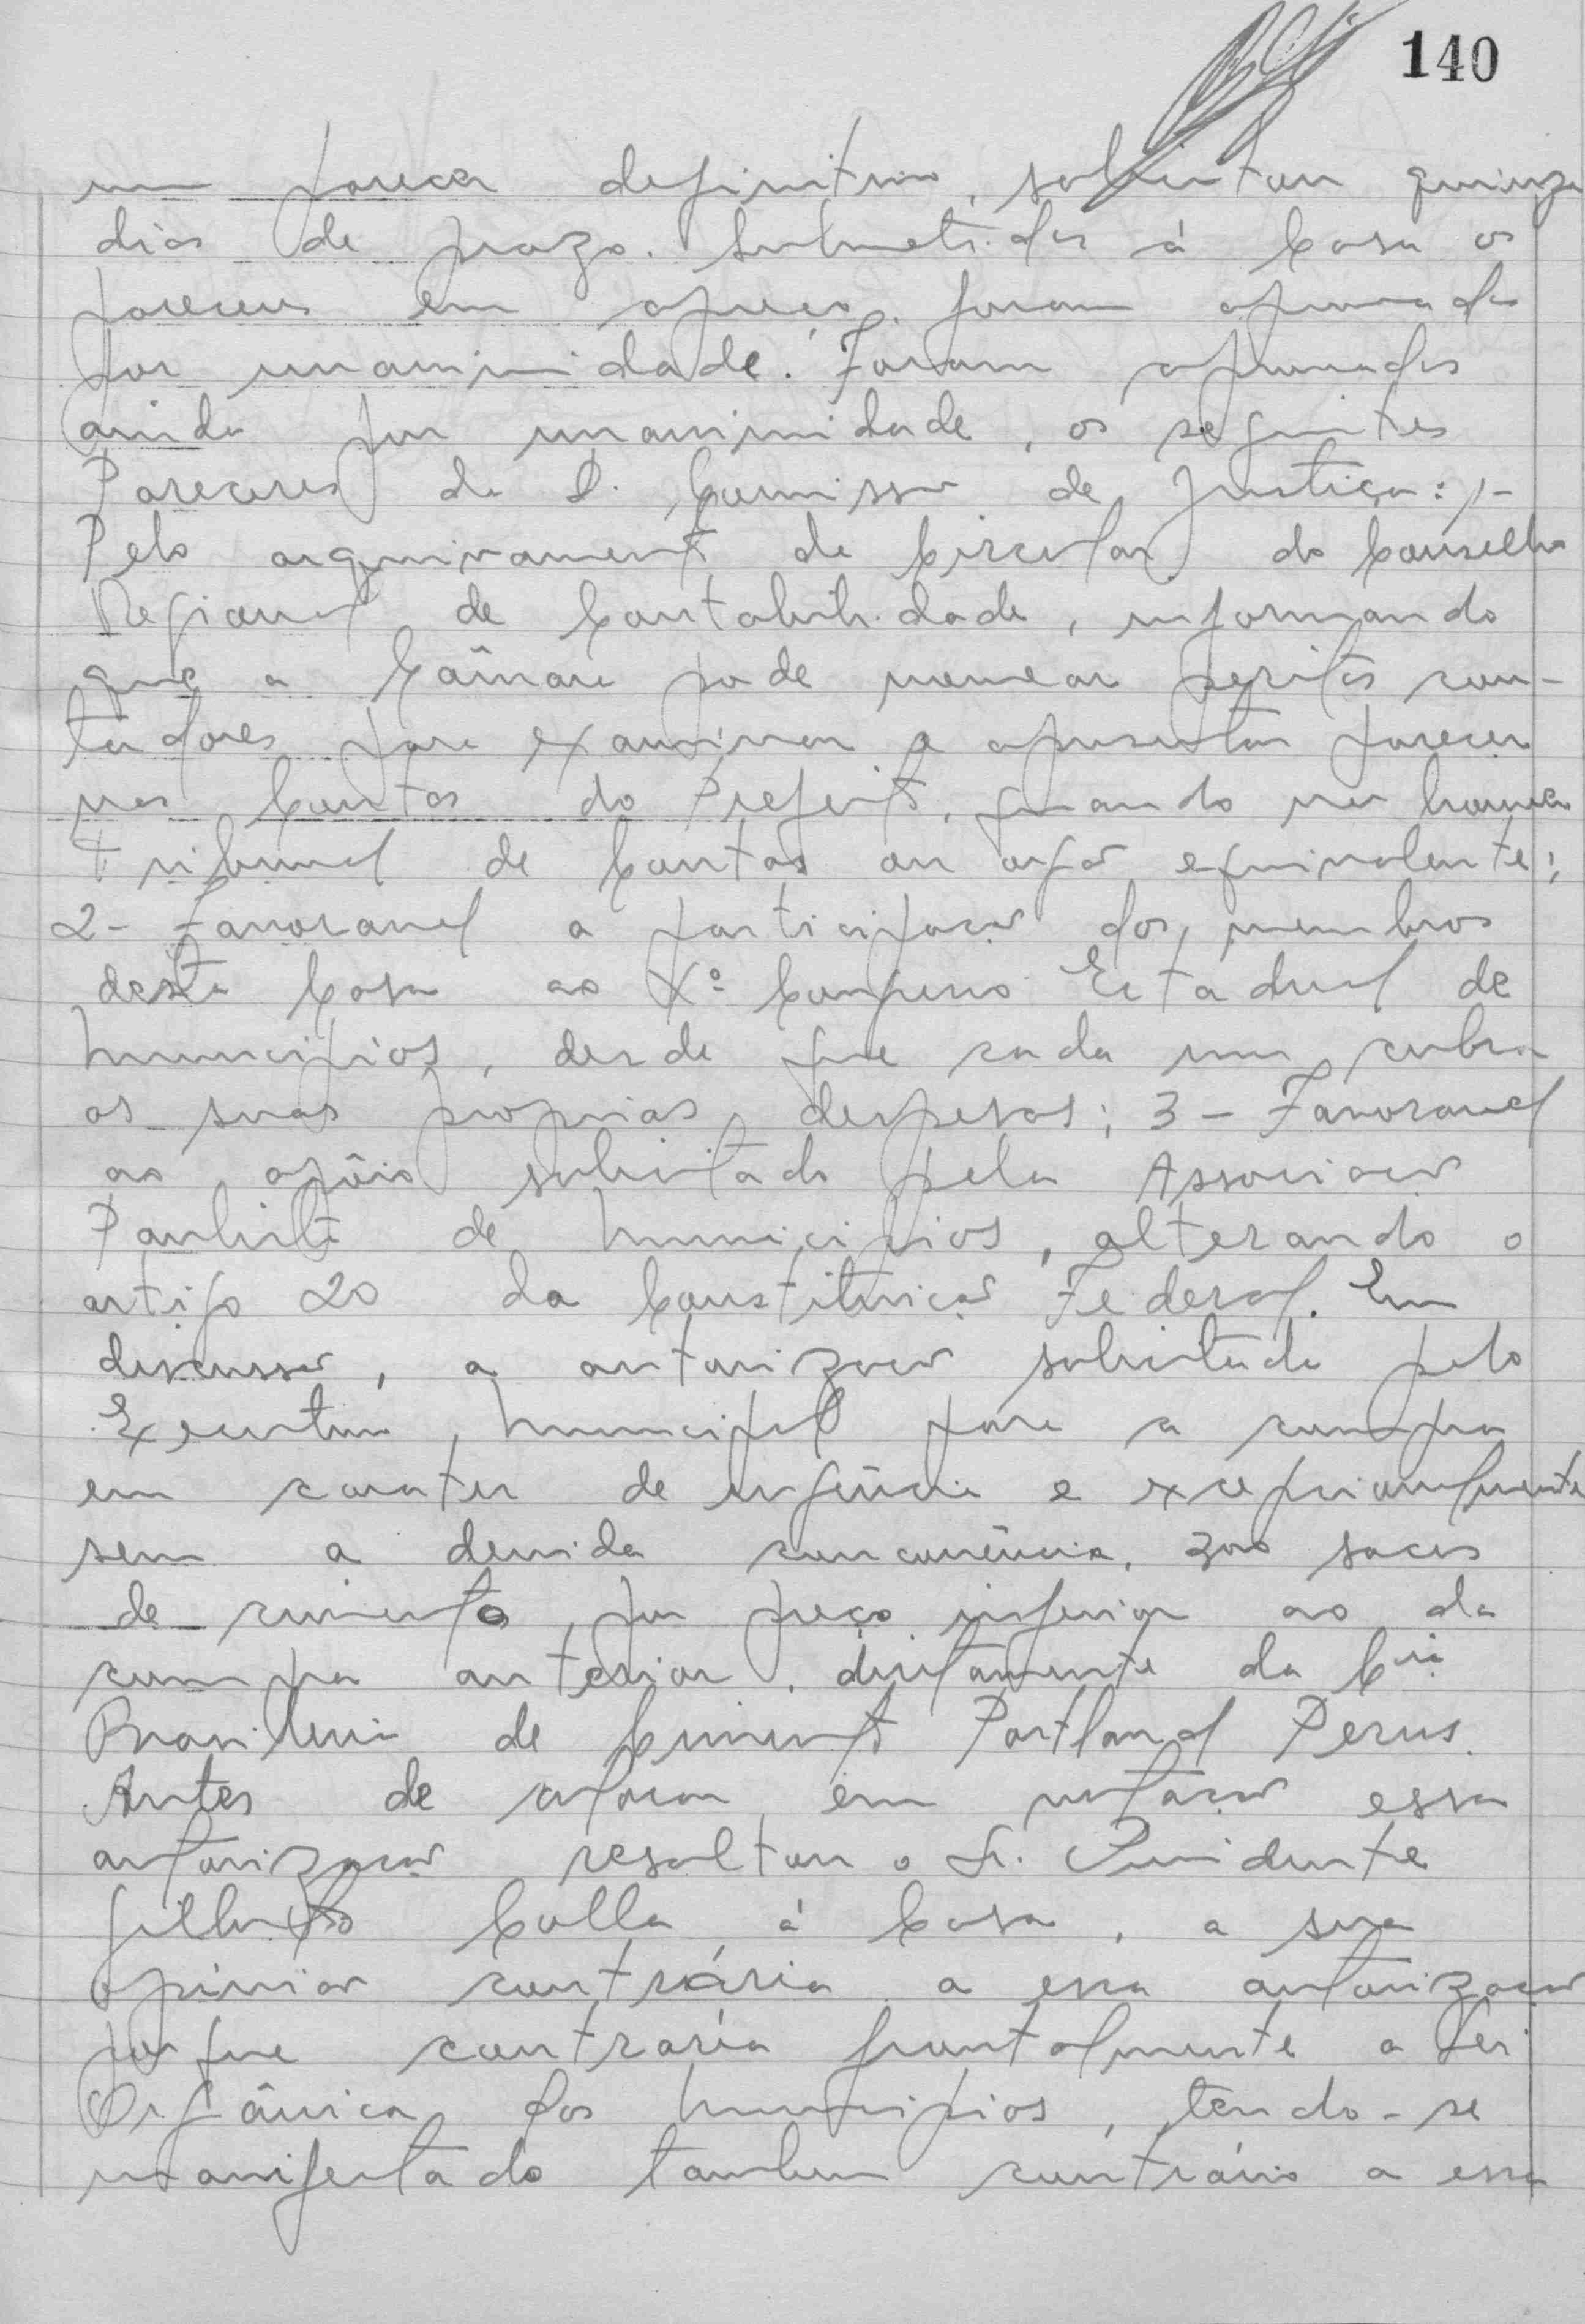 140
um parecer definitivo, solicitou quinze
dias de prazo. Submetidos á Casa os
pareceres em apreço, foram aprovados
por unanimidade. Foram aprovados
ainda por unanimidade, os seguintes
Pareceres da D. Comissão de Justiça: 1-
Pelo arquivamento da Circular do Conselho
Regional de Contabilidade, informando
que a Câmara pode nomear peritos con-
tadores para examinar e apresentar parecer
nas Contas do Prefeito, quando não houver
Tribunal de Contas ou orgão equivalente;
2- Favoravel a participação dos membros
desta Casa ao Xº Congresso Estadual de
Municipios, desde que cada um cubra
as suas proprias despesas; 3- Favoravel
ao apôio solicitado pela Associação
Paulista de Municipios, alterando o
artigo 20 da Constituição Federal. Em
discussão, a autorização solicitada pelo
Executivo Municipal para a compra
em carater de urgência e excepcionalmente
sem a devida concorrência, 300 sacos
de cimento, por preço inferior ao da
compra anterior, diretamente da Cia
Brasileira de Cimento Portland Perus.
Antes de colocar em votação essa
autorização resaltou o Sr. Presidente
Gilberto Colla, á Casa, a sua
opinião contrária a essa autorização
porque contraria frontalmente a Lei
Orgânica dos Municipios, tendo-se
manifestado tambem contrário a essa